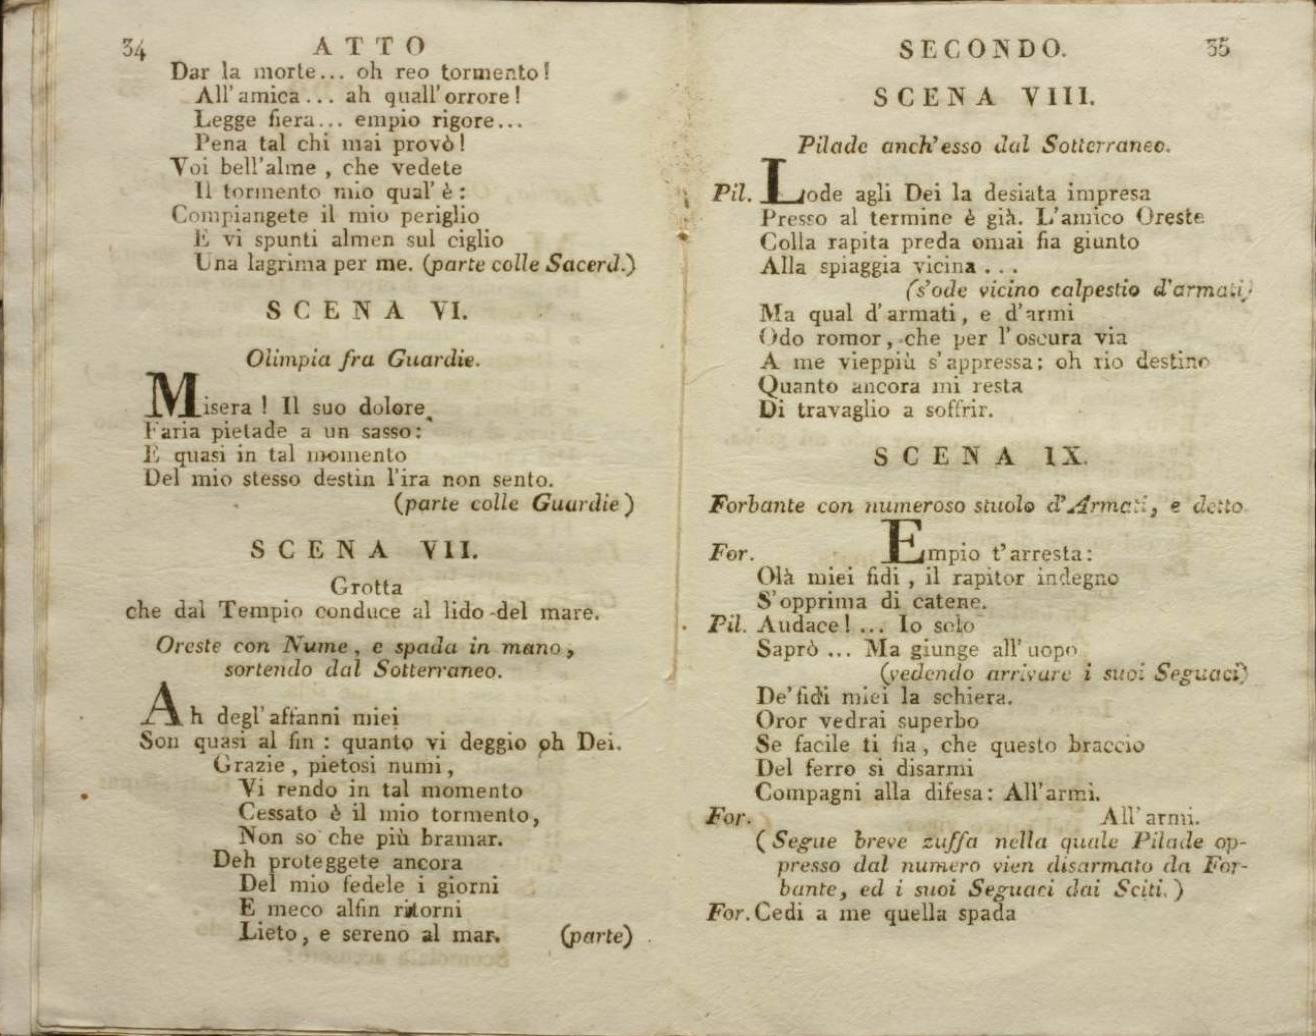 34 ATTO
Dar la morte... oh reo tormento!
All'amica... ah quall'orrore!
Legge fiera... empio rigore...
Pena tal chi mai provò!
Voi bell'alme, che vedete
Il tormento mio qual'è:
Compiangete il mio periglio
E vi spunti almen sul ciglio
Una lagrima per me. (parte colle Sacerd.)
SCENA VI.
Olimpia fra Guardie.
Misera! Il suo dolore
Faria pietade a un sasso:
E quasi in tal momento
Del mio stesso destin l'ira non sento.
(parte colle Guardie)
SCENA VII.
Grotta
che dal Tempio conduce al lido del mare.
Oreste con Nume, e spada in mano,
sortendo dal Sotterraneo.
Ah degl'affanni miei
Son quasi al fin: quanto vi deggio oh Dei.
Grazie, pietosi numi,
Vi rendo in tal momento
Cessato è il mio tormento,
Non so che più bramar.
Deh proteggete ancora
Del mio fedele i giorni
E meco alfin ritorni
Lieto, e sereno al mar. (parte)
SECONDO. 35
SCENA VIII.
Pilade anch'esso dal Sotterraneo.
Pil. Lode agli Dei la desiata impresa
Presso al termine è già. L'amico Oreste
Colla rapita preda omai fia giunto
Alla spiaggia vicina...
(s'ode vicino calpestio d'armati)
Ma qual d'armati, e d'armi
Odo romor, che per l'oscura via
A me vieppiù s'appressa; oh rio destino
Quanto ancora mi resta
Di travaglio a soffrir.
SCENA IX.
Forbante con numeroso stuolo d'Armati, e detto
For. Empio t'arresta:
Olà miei fidi, il rapitor indegno
S'opprima di catene.
Pil. Audace!... Io solo
Saprò... Ma giunge all'uopo
(vedendo arrivare i suoi Seguaci)
De' fidi miei la schiera.
Oror vedrai superbo
Se facile ti fia, che questo braccio
Del ferro si disarmi
Compagni alla difesa: All'armi.
For. All'armi.
(Segue breve zuffa nella quale Pilade op-
presso dal numero vien disarmato da For-
bante, ed i suoi Seguaci dai Sciti.)
For. Cedi a me quella spada